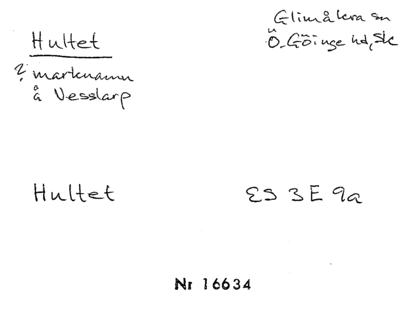 Hultet
Glimåkra sn
Ö. Göinge hd, Sk
? marknamn
å Vesslarp
Hultet
ES 3E 9a
Nr 16634